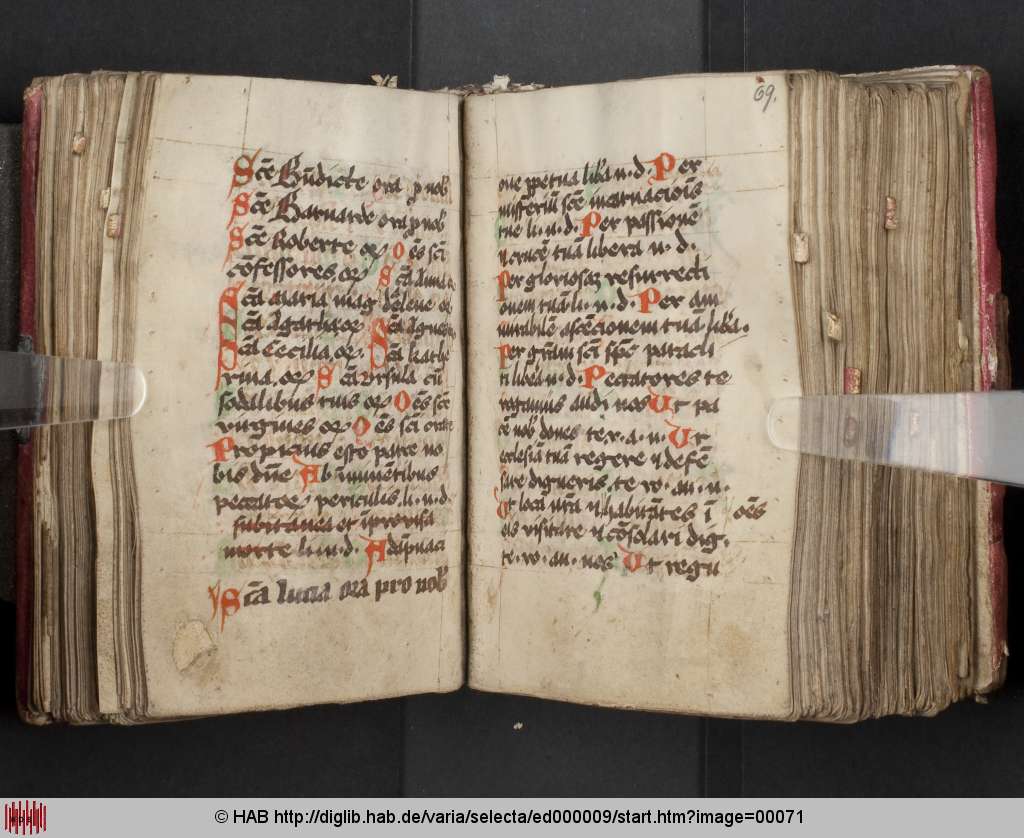 Sce Bn̄dicte ora p nob
Sce Barnarde ora p nob
Sce Roberte or Oēs sci
cōfessores or Sca Anna
Sca maria mag dēlene or
Sca Agatha or Sca Agnes
Sca Cecilia or Sca kathe
rina or Sca Vrsula cū
sodalibus tuis or Oēs sce
virgines or Oēs sci orate
Propicius esto parce no
bis dn̄e Ab īminētibus
peccator periculis li n d
subitanea et īprovisa
morte li n d A dāpnaci
Sca lucia ora pro nob
69.
one ppetua liba n d Per
misteriū sce incarnaciois
tue li n d Per passionē
⁊ crucē tuā libera n d
Per gloriosā resurrecti
onem tuā li n d Per am
mirabilē ascēcionem tuā liba
Per grām sci spc paracli
ti libea n d Peccatores te
rogamus audi nos Ut pa
cē nob dones te r a n Ut
ecclesiā tuā regere ⁊ defē
sare digneris te ro au n
Ut locū nr̄m ⁊ habitātes ī oēs
eis visitare ⁊ cōsolari dig
te ro au nos Ut regu
© HAB http://diglib.hab.de/varia/selecta/ed000009/start.htm?image=00071